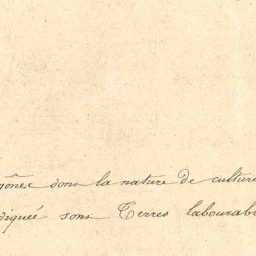 dont la nature de culture
diquée sous Terres labourab